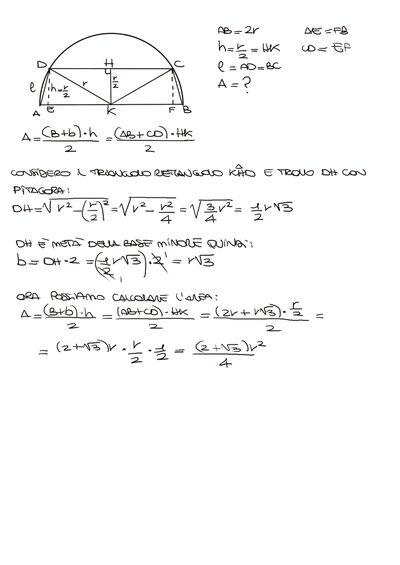 AB = 2r AE = FB
h = r/2 = HK CD = EF
l = AD = BC
A = ?
D H C
l h = r/2 r r/2
A E K F B
A = (B+b)·h/2 = (AB+CD)·HK/2
CONSIDERO IL TRIANGOLO RETTANGOLO KHD E TROVO DH CON
PITAGORA:
DH = √(r² - (r/2)²) = √(r² - r²/4) = √(3/4 r²) = 1/2 r√3
DH È METÀ DELLA BASE MINORE QUINDI:
b = DH·2 = (1/2 r√3)·2 = r√3
ORA POSSIAMO CALCOLARE L'AREA:
A = (B+b)·h/2 = (AB+CD)·HK/2 = (2r + r√3)·r/2/2 =
= (2+√3)r · r/2 · 1/2 = (2+√3)r²/4